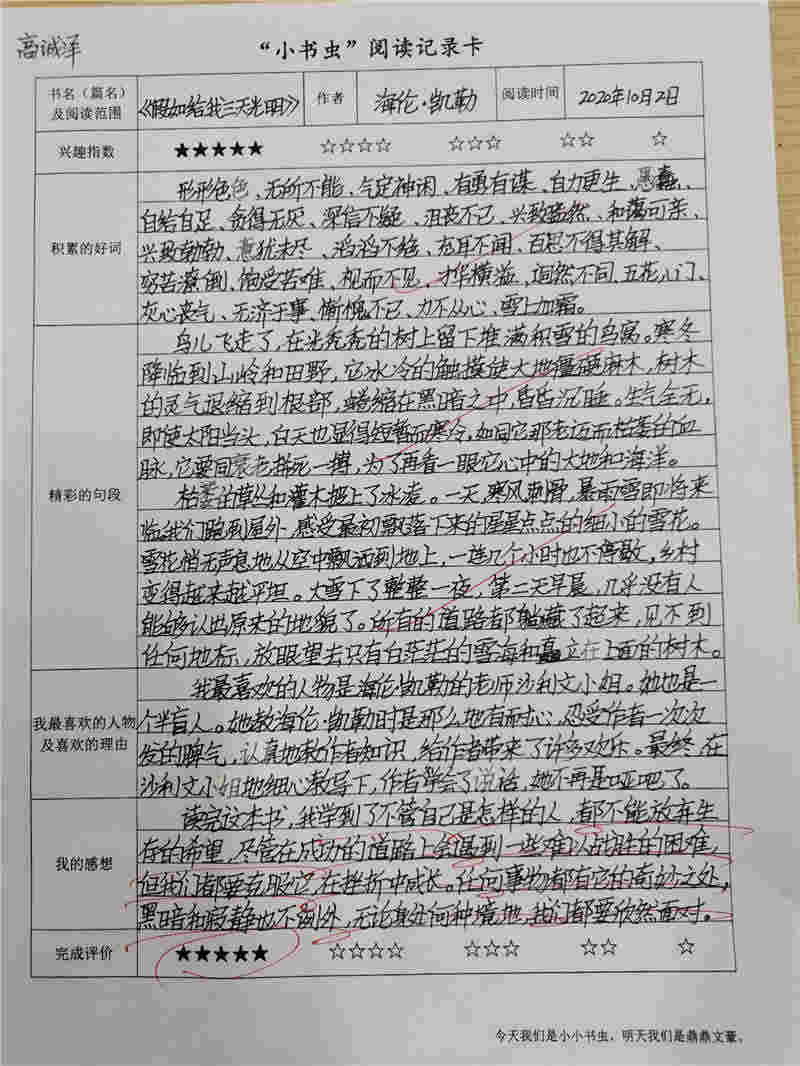 高诚泽
“小书虫”阅读记录卡
书名（篇名）及阅读范围 《假如给我三天光明》 作者 海伦·凯勒 阅读时间 2020年10月2日
兴趣指数 ★★★★★ ☆☆☆☆ ☆☆☆ ☆☆ ☆
积累的好词
形形色色、无所不能、气定神闲、有勇有谋、自力更生、愚蠢、
自给自足、贪得无厌、深信不疑、沮丧不已、兴致盎然、和蔼可亲、
兴致勃勃、意犹未尽、滔滔不绝、充耳不闻、百思不得其解、
穷苦潦倒、饱受苦难、视而不见、才华横溢、迥然不同、五花八门、
灰心丧气、无济于事、惭愧不已、力不从心、雪上加霜。
精彩的句段
鸟儿飞走了，在光秃秃的树上留下堆满积雪的鸟窝。寒冬
降临到山岭和田野，它冰冷的触摸使大地僵硬麻木，树木
的灵气退缩到根部，蜷缩在黑暗之中，昏昏沉睡。生气全无，
即使太阳当头，白天也显得短暂而寒冷，如同它那老迈而枯萎的血
脉，它要同衰老拼死一搏，为了再看一眼它心中的大地和海洋。
枯萎的草丛和灌木披上了冰凌。一天，寒风刺骨，暴雨雪即将来
临，我们跑到屋外，感受最初飘落下来的星星点点的细小的雪花。
雪花悄无声息地从空中飘洒到地上，一连几个小时也不停歇，乡村
变得越来越平坦。大雪下了整整一夜，第二天早晨，几乎没有人
能够认出原来的地貌了。所有的道路都躲藏了起来，见不到
任何地标，放眼望去只有白茫茫的雪海和矗立在上面的树木。
我最喜欢的人物及喜欢的理由
我最喜欢的人物是海伦·凯勒的老师沙利文小姐。她也是一
个半盲人。她教海伦·凯勒时是那么地有耐心，忍受作者一次次
发的脾气，认真地教作者知识，给作者带来了许多欢乐。最终，在
沙利文小姐地细心教导下，作者学会了说话，她不再是哑吧了。
我的感想
读完这本书，我学到了不管自己是怎样的人，都不能放弃生
存的希望，尽管在成功的道路上会遇到一些难以战胜的困难，
但我们都要克服它，在挫折中成长。任何事物都有它的奇妙之处，
黑暗和寂静也不例外，无论身处何种境地，我们都要欣然面对。
完成评价 ★★★★★ ☆☆☆☆ ☆☆☆ ☆☆ ☆
今天我们是小小书虫，明天我们是鼎鼎文豪。